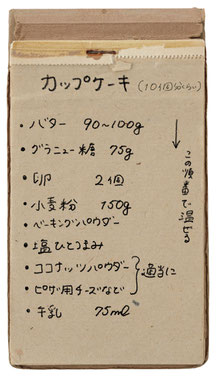 カップケーキ (10コ分くらい)
・バター 90~100g
・グラニュー糖 75g
・卵 2個
・小麦粉 150g
・ベーキングパウダー
・塩ひとつまみ
・ココナッツパウダー
・ピザ用チーズなど
適当に
・牛乳 75ml
この順番で混ぜる